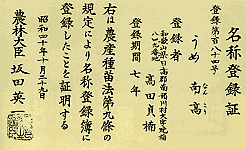 名称登録証
登録第百八十四号
うめ 南高
なんこう
登録者
和歌山県日高郡南部川村大字晩稲
高田貞楠
登録期間 七年
右は農産種苗法第九條の
規定により名称登録簿に
登録したことを証明する
昭和四十年十月二十九日
農林大臣 坂田英一